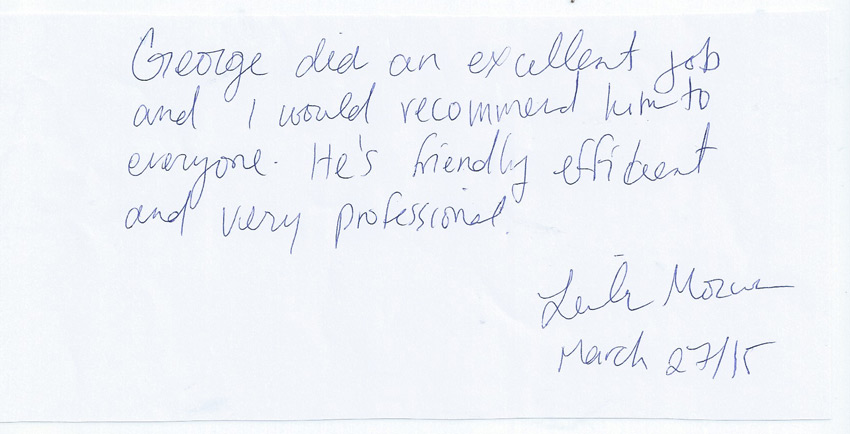 George did an excellent job
and I would recommend him to
everyone. He's friendly efficient
and very professional.
March 27/15